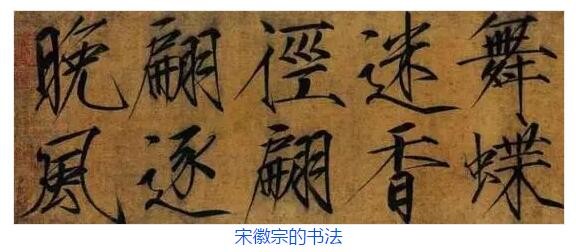 舞蝶
迷香
徑翩
翩逐
晚風
宋徽宗的书法